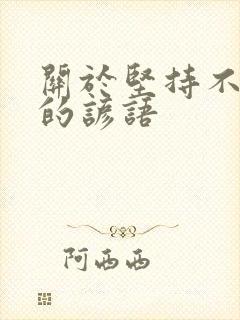 關於堅持不
的諺語
阿西西